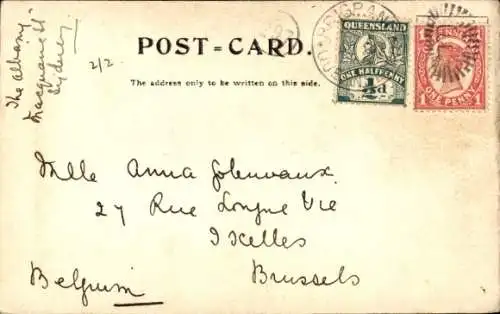 "The Albany"
Macquarie St
Sydney
2/2
POST=CARD.
The address only to be written on this side.
QUEENSLAND
ONE HALFPENNY
½d
ONE PENNY
1 1
Mlle Anna
27 Rue Longue Vie
Ixelles
Brussels
Belgium